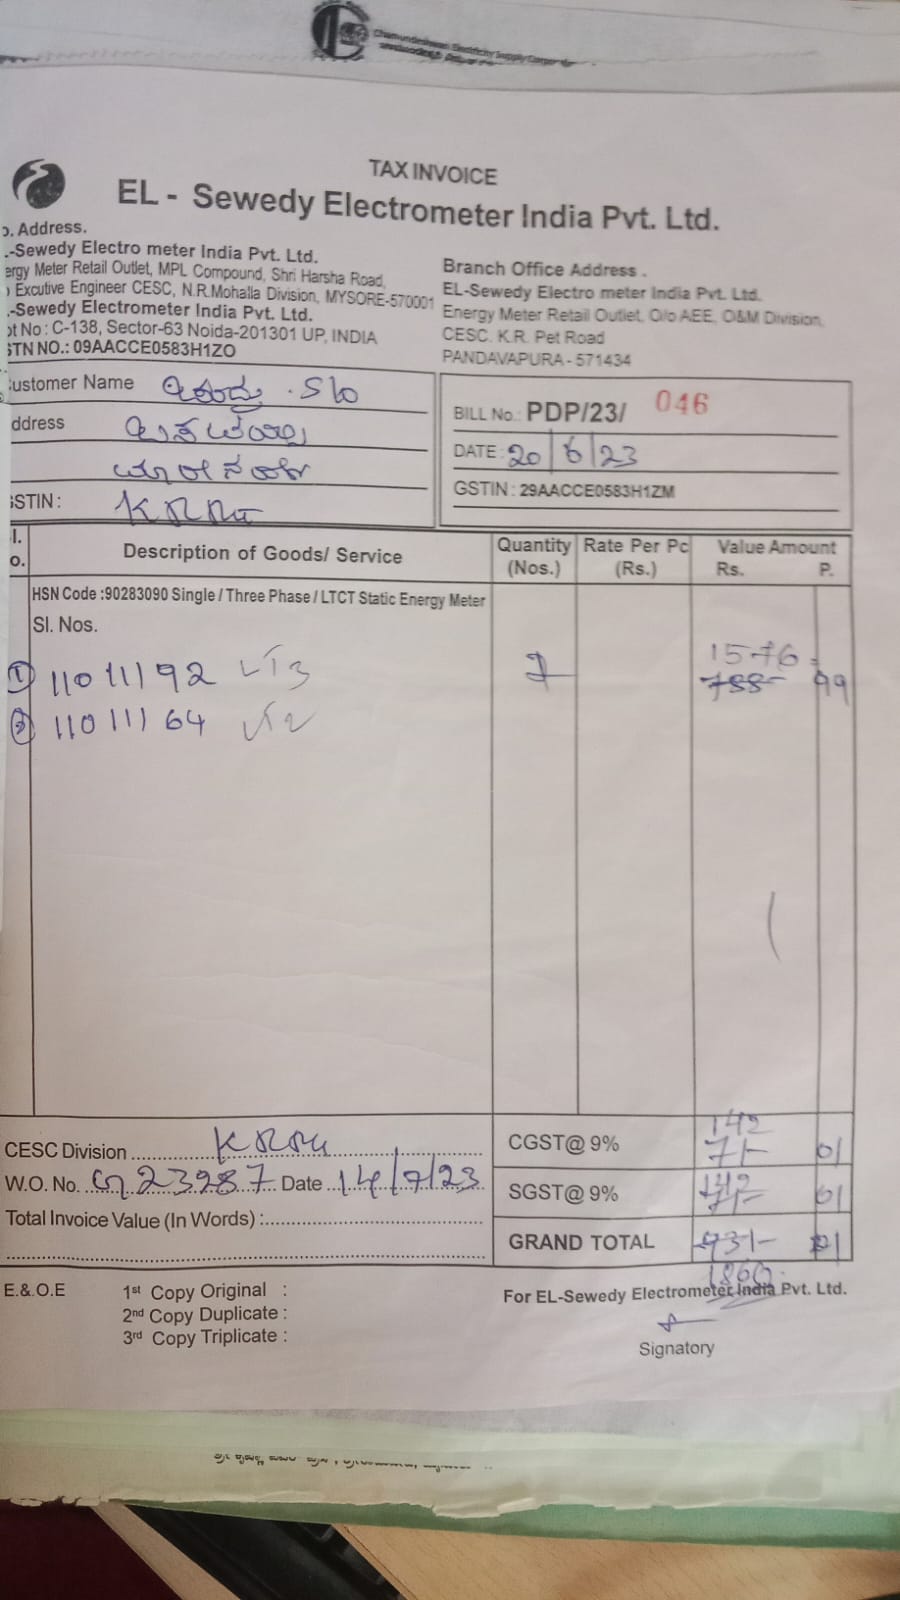 Chamundeshwari Electricity Supply Corpor
TAX INVOICE
EL - Sewedy Electrometer India Pvt. Ltd.
o. Address.
-Sewedy Electro meter India Pvt. Ltd.
ergy Meter Retail Outlet, MPL Compound, Shri Harsha Road,
Excutive Engineer CESC, N.R.Mohalla Division, MYSORE-570001
-Sewedy Electrometer India Pvt. Ltd.
ot No : C-138, Sector-63 Noida-201301 UP, INDIA
STN NO.: 09AACCE0583H1ZO
Branch Office Address .
EL-Sewedy Electro meter India Pvt. Ltd.
Energy Meter Retail Outlet, O/o AEE, O&M Division,
CESC. K.R. Pet Road
PANDAVAPURA - 571434
ustomer Name S/o
ddress
GSTIN :
BILL No.: PDP/23/ 046
DATE : 20/6/23
GSTIN : 29AACCE0583H1ZM
l. o. Description of Goods/ Service Quantity (Nos.) Rate Per Pc (Rs.) Value Amount Rs. P.
HSN Code :90283090 Single / Three Phase / LTCT Static Energy Meter
Sl. Nos.
1576
① 11011192 LT3 788- 99
② 11011164
142
CESC Division CGST@ 9% 71- 01
W.O. No. 23987 Date 14/7/23 SGST@ 9% 142 71- 01
Total Invoice Value (In Words) :
GRAND TOTAL 931- 01
1860
E.& O.E 1st Copy Original :
2nd Copy Duplicate :
3rd Copy Triplicate :
For EL-Sewedy Electrometer India Pvt. Ltd.
Signatory